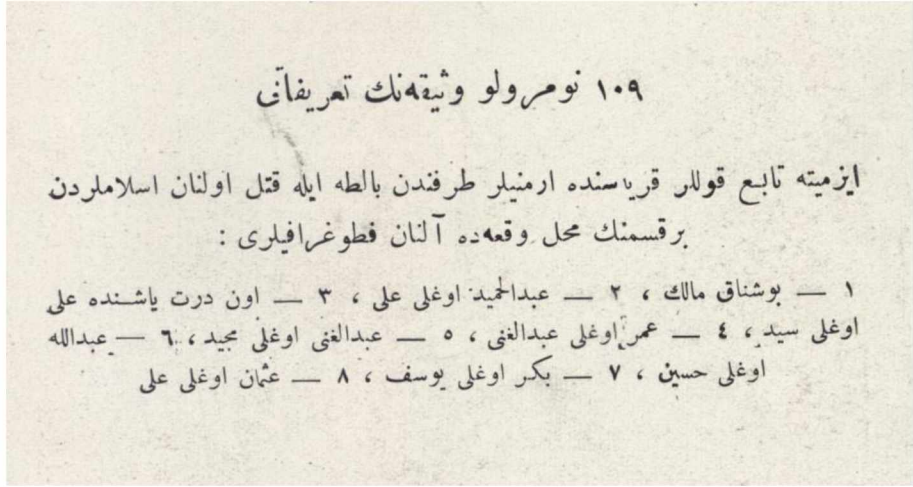 ١٠٩ نومرولو وثيقه‌نك تعريفاتى
ايزميته تابع قوللر قرياسنده ارمنيلر طرفندن بالطه ايله قتل اولنان اسلاملردن
برقسمنك محل وقعه‌ده آلنان فطوغرافيلرى :
١ — بوشناق مالك ، ٢ — عبدالحميد اوغلى على ، ٣ — اون درت ياشنده على
اوغلى سيد ، ٤ — عمر اوغلى عبدالغنى ، ٥ — عبدالغنى اوغلى مجيد ، ٦ — عبدالله
اوغلى حسين ، ٧ — بكر اوغلى يوسف ، ٨ — عثمان اوغلى على